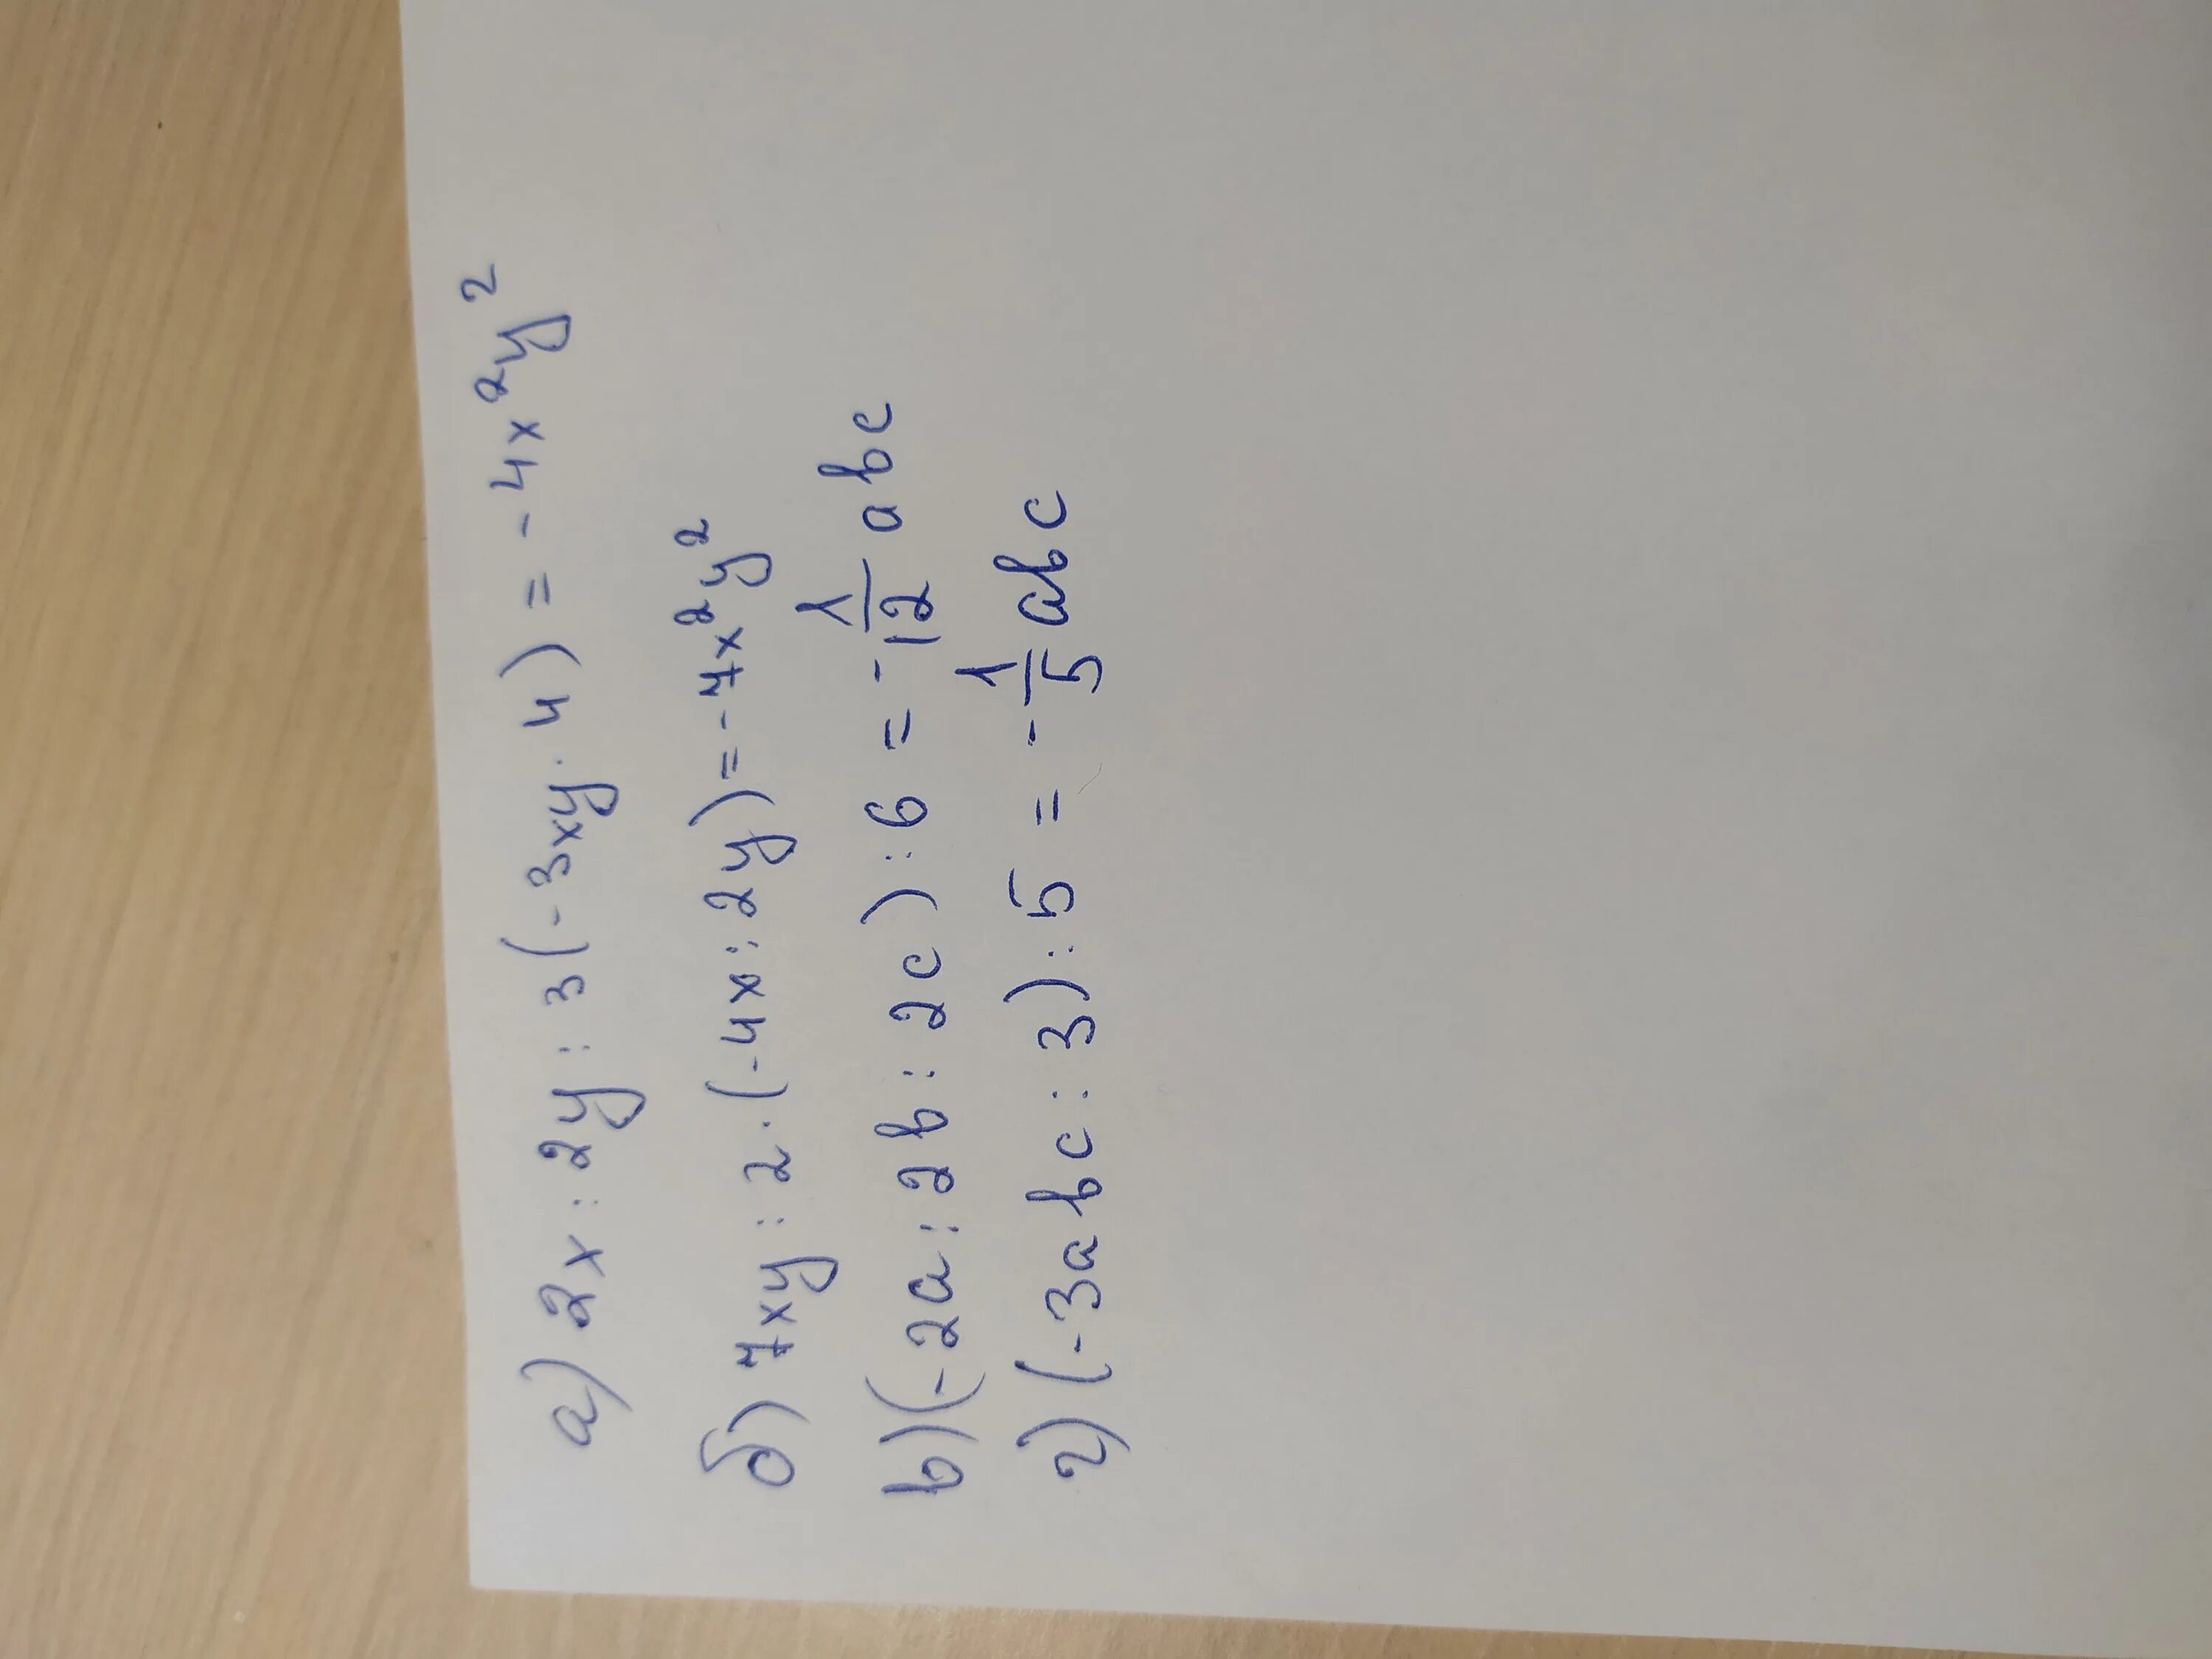 а) 2x : 2y : 3(-3xy · 4) = -4x²y²
б) 7xy : 2 · (-4x : 2y) = -7x²y²
в) (-2a : 2b : 2c) : 6 = -1/12 abc
г) (-3abc : 3) : 5 = -1/5 abc